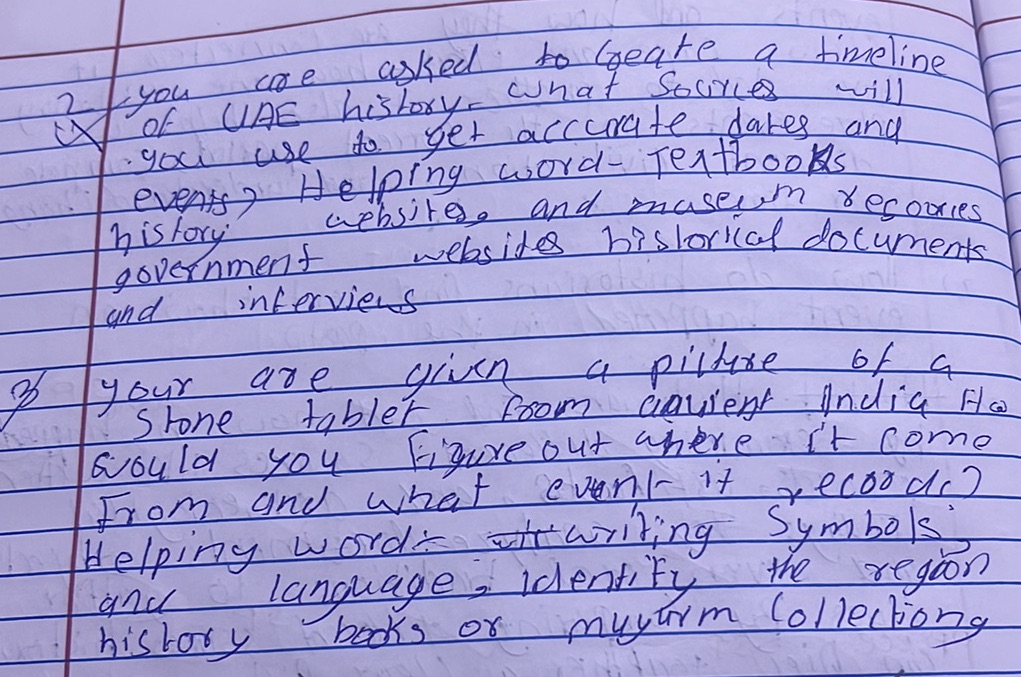 2 you are asked to Create a timeline
of UAE history. what Sources will
you use to get accurate dates and
events? Helping word- Textbooks
history websites, and museum recories
government websites historical documents
and interviews
3 your are given a picture of a
Stone tablet from ancient India Ho
would you Figure out where it come
From and what event it record?
Helping word:- writing Symbols,
and language, identify the region
history books or collections